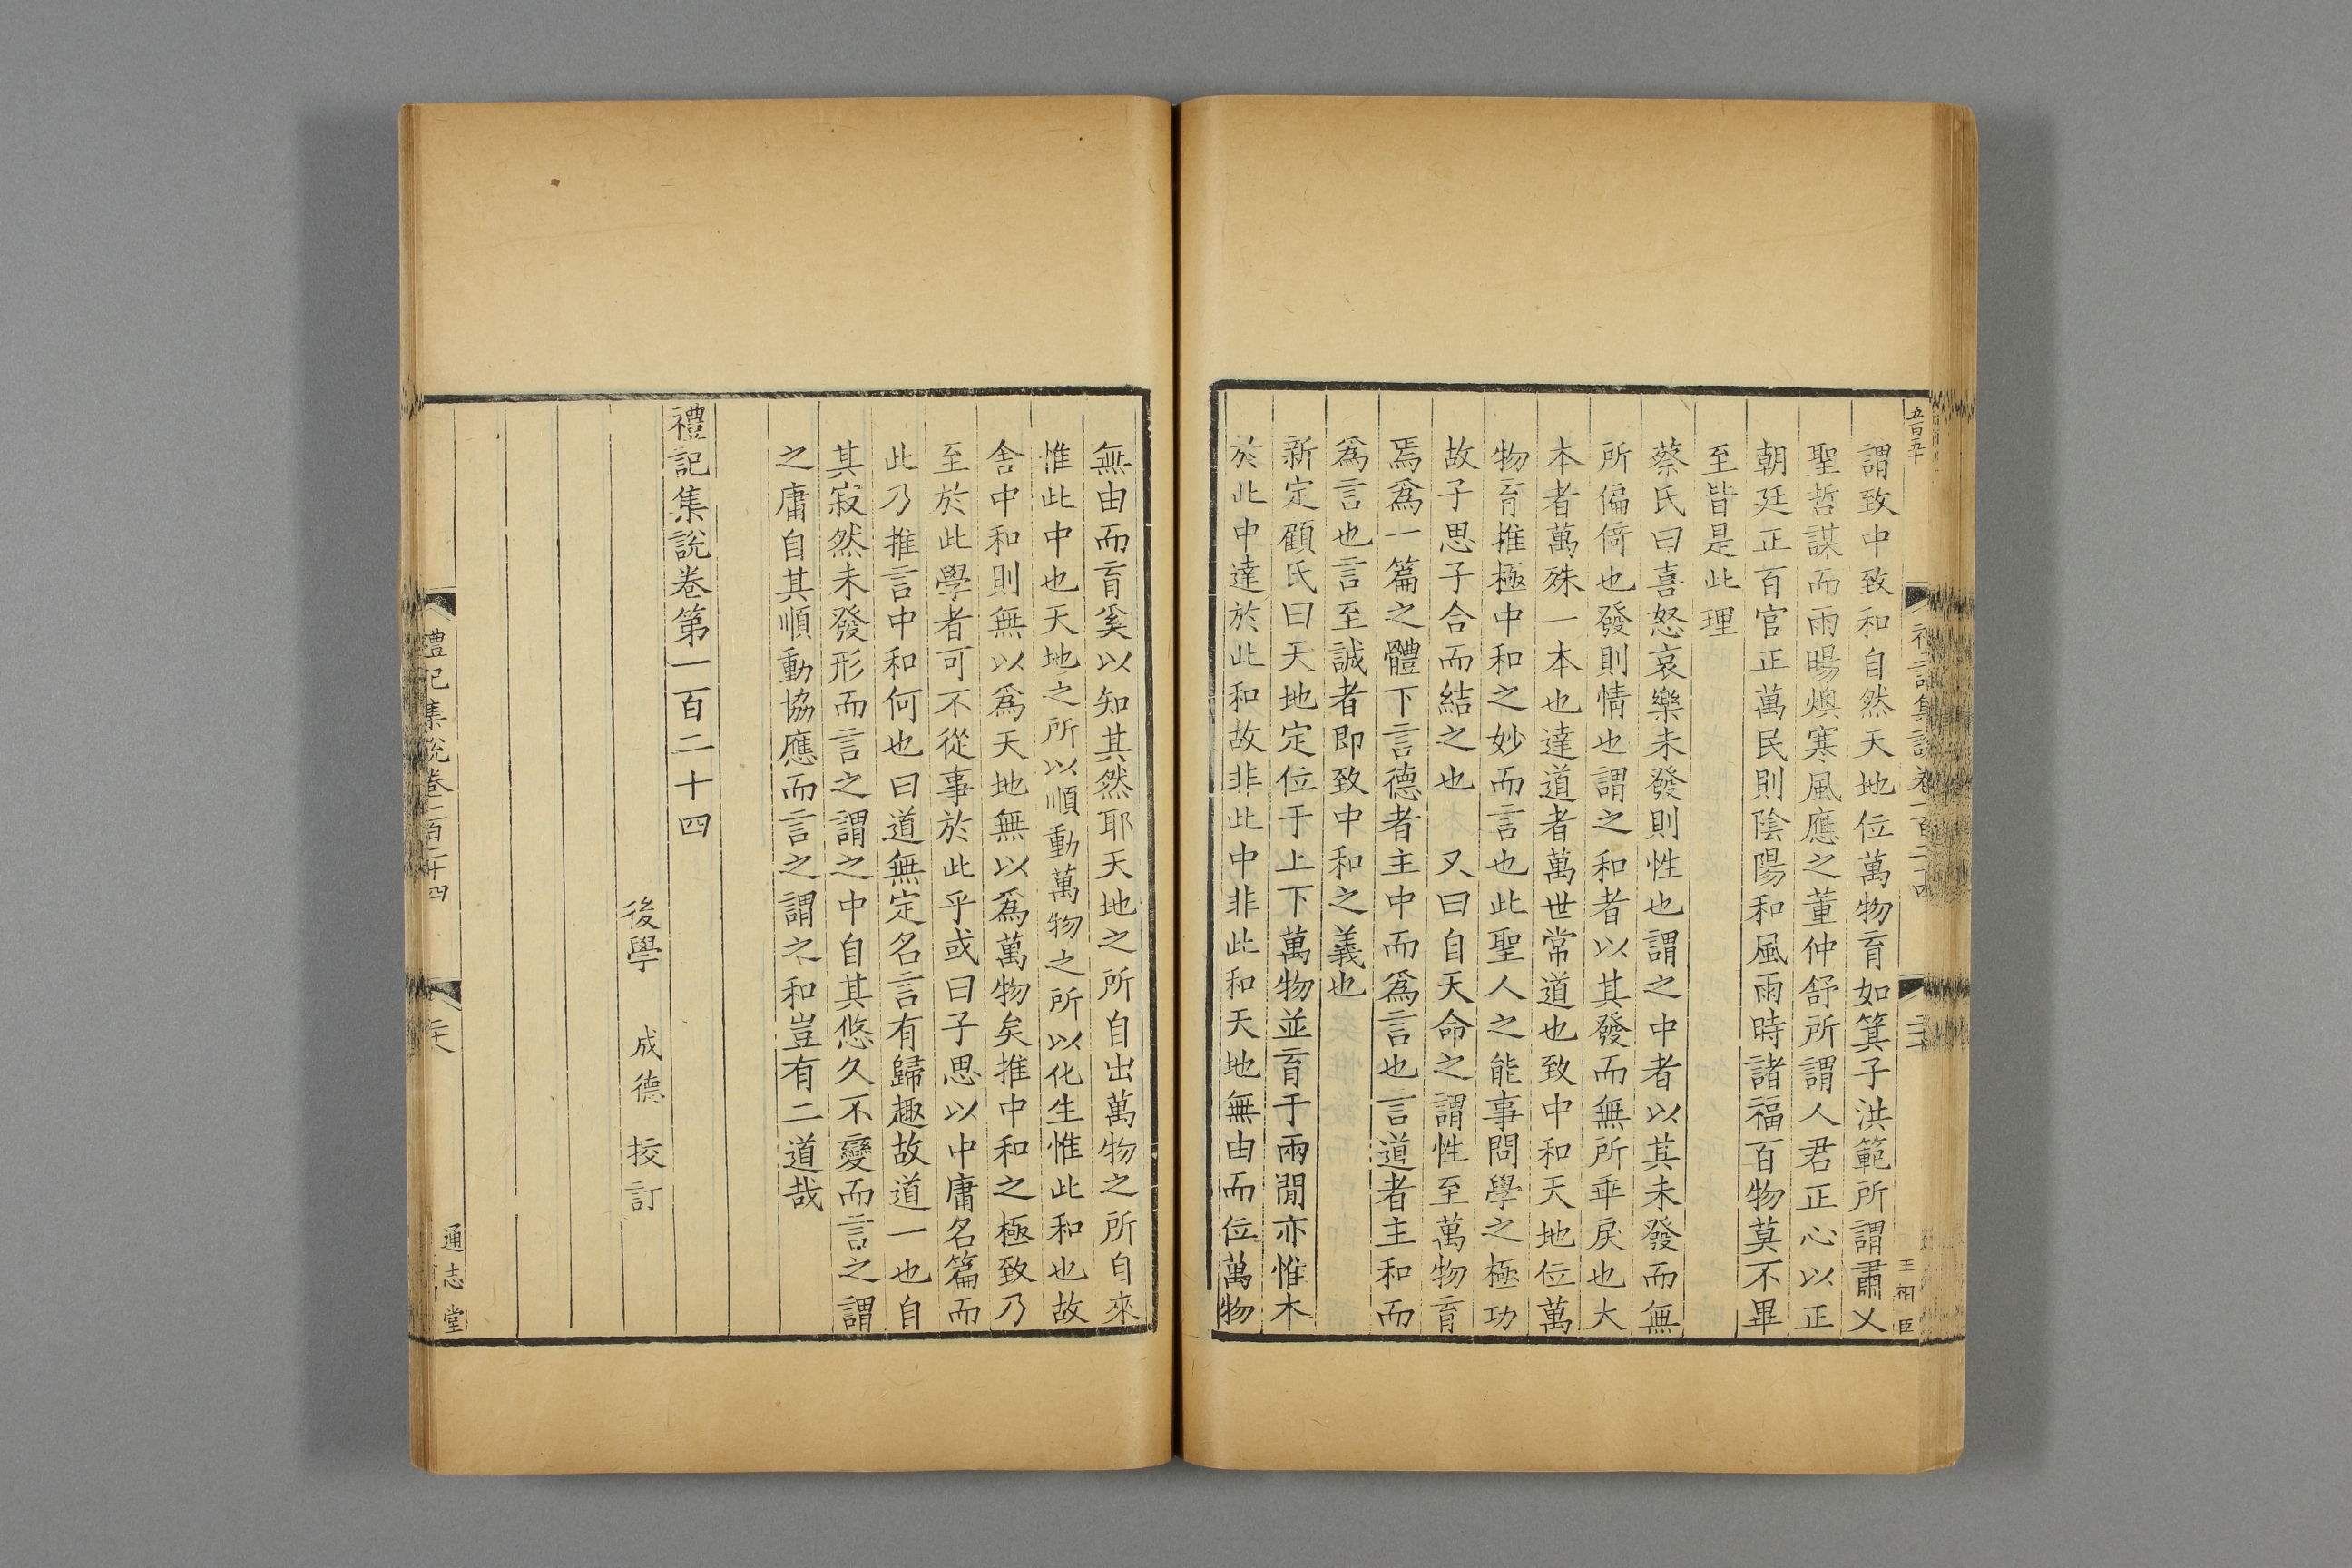 五百五十
謂致中致和自然天地位萬物育如箕子洪範所謂肅乂
聖哲謀而雨暘燠寒風應之董仲舒所謂人君正心以正
朝廷正百官正萬民則陰陽和風雨時諸福百物莫不畢
至皆是此理
蔡氏曰喜怒哀樂未發則性也謂之中者以其未發而無
所偏倚也發則情也謂之和者以其發而無所乖戾也大
本者萬殊一本也達道者萬世常道也致中和天地位萬
物育推極中和之妙而言也此聖人之能事問學之極功
故子思子合而結之也 又曰自天命之謂性至萬物育
焉爲一篇之體下言德者主中而爲言也言道者主和而
爲言也言至誠者即致中和之義也
新定顧氏曰天地定位于上下萬物並育于兩閒亦惟本
於此中達於此和故非此中非此和天地無由而位萬物
王相臣
無由而育奚以知其然耶天地之所自出萬物之所自來
惟此中也天地之所以順動萬物之所以化生惟此和也故
舍中和則無以爲天地無以爲萬物矣推中和之極致乃
至於此學者可不從事於此乎或曰子思以中庸名篇而
此乃推言中和何也曰道無定名言有歸趣故道一也自
其寂然未發形而言之謂之中自其悠久不變而言之謂
之庸自其順動協應而言之謂之和豈有二道哉
禮記集說卷第一百二十四
後學 成德 挍訂
禮記集說卷一百二十四
通志堂